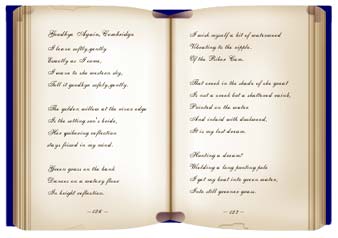 Goodbye Again, Cambridge
I leave softly, gently
Exactly as I came,
I wave to the western sky,
Tell it goodbye softly, gently.
The golden willow at the river edge
Is the setting sun's bride,
Her quivering reflection
stays fixed in my mind.
Green grass on the bank
Dances on a watery floor
In bright reflection.
~ 126 ~
I wish myself a bit of waterweed
Vibrating to the ripple.
Of the River Cam.
That creek in the shade of the great
Is not a creek but a shattered rainbow,
Printed on the water
And inlaid with duckweed,
It is my lost dream.
Hunting a dream?
Wielding a long punting pole
I get my boat into green water,
Into still greener grass.
~ 127 ~